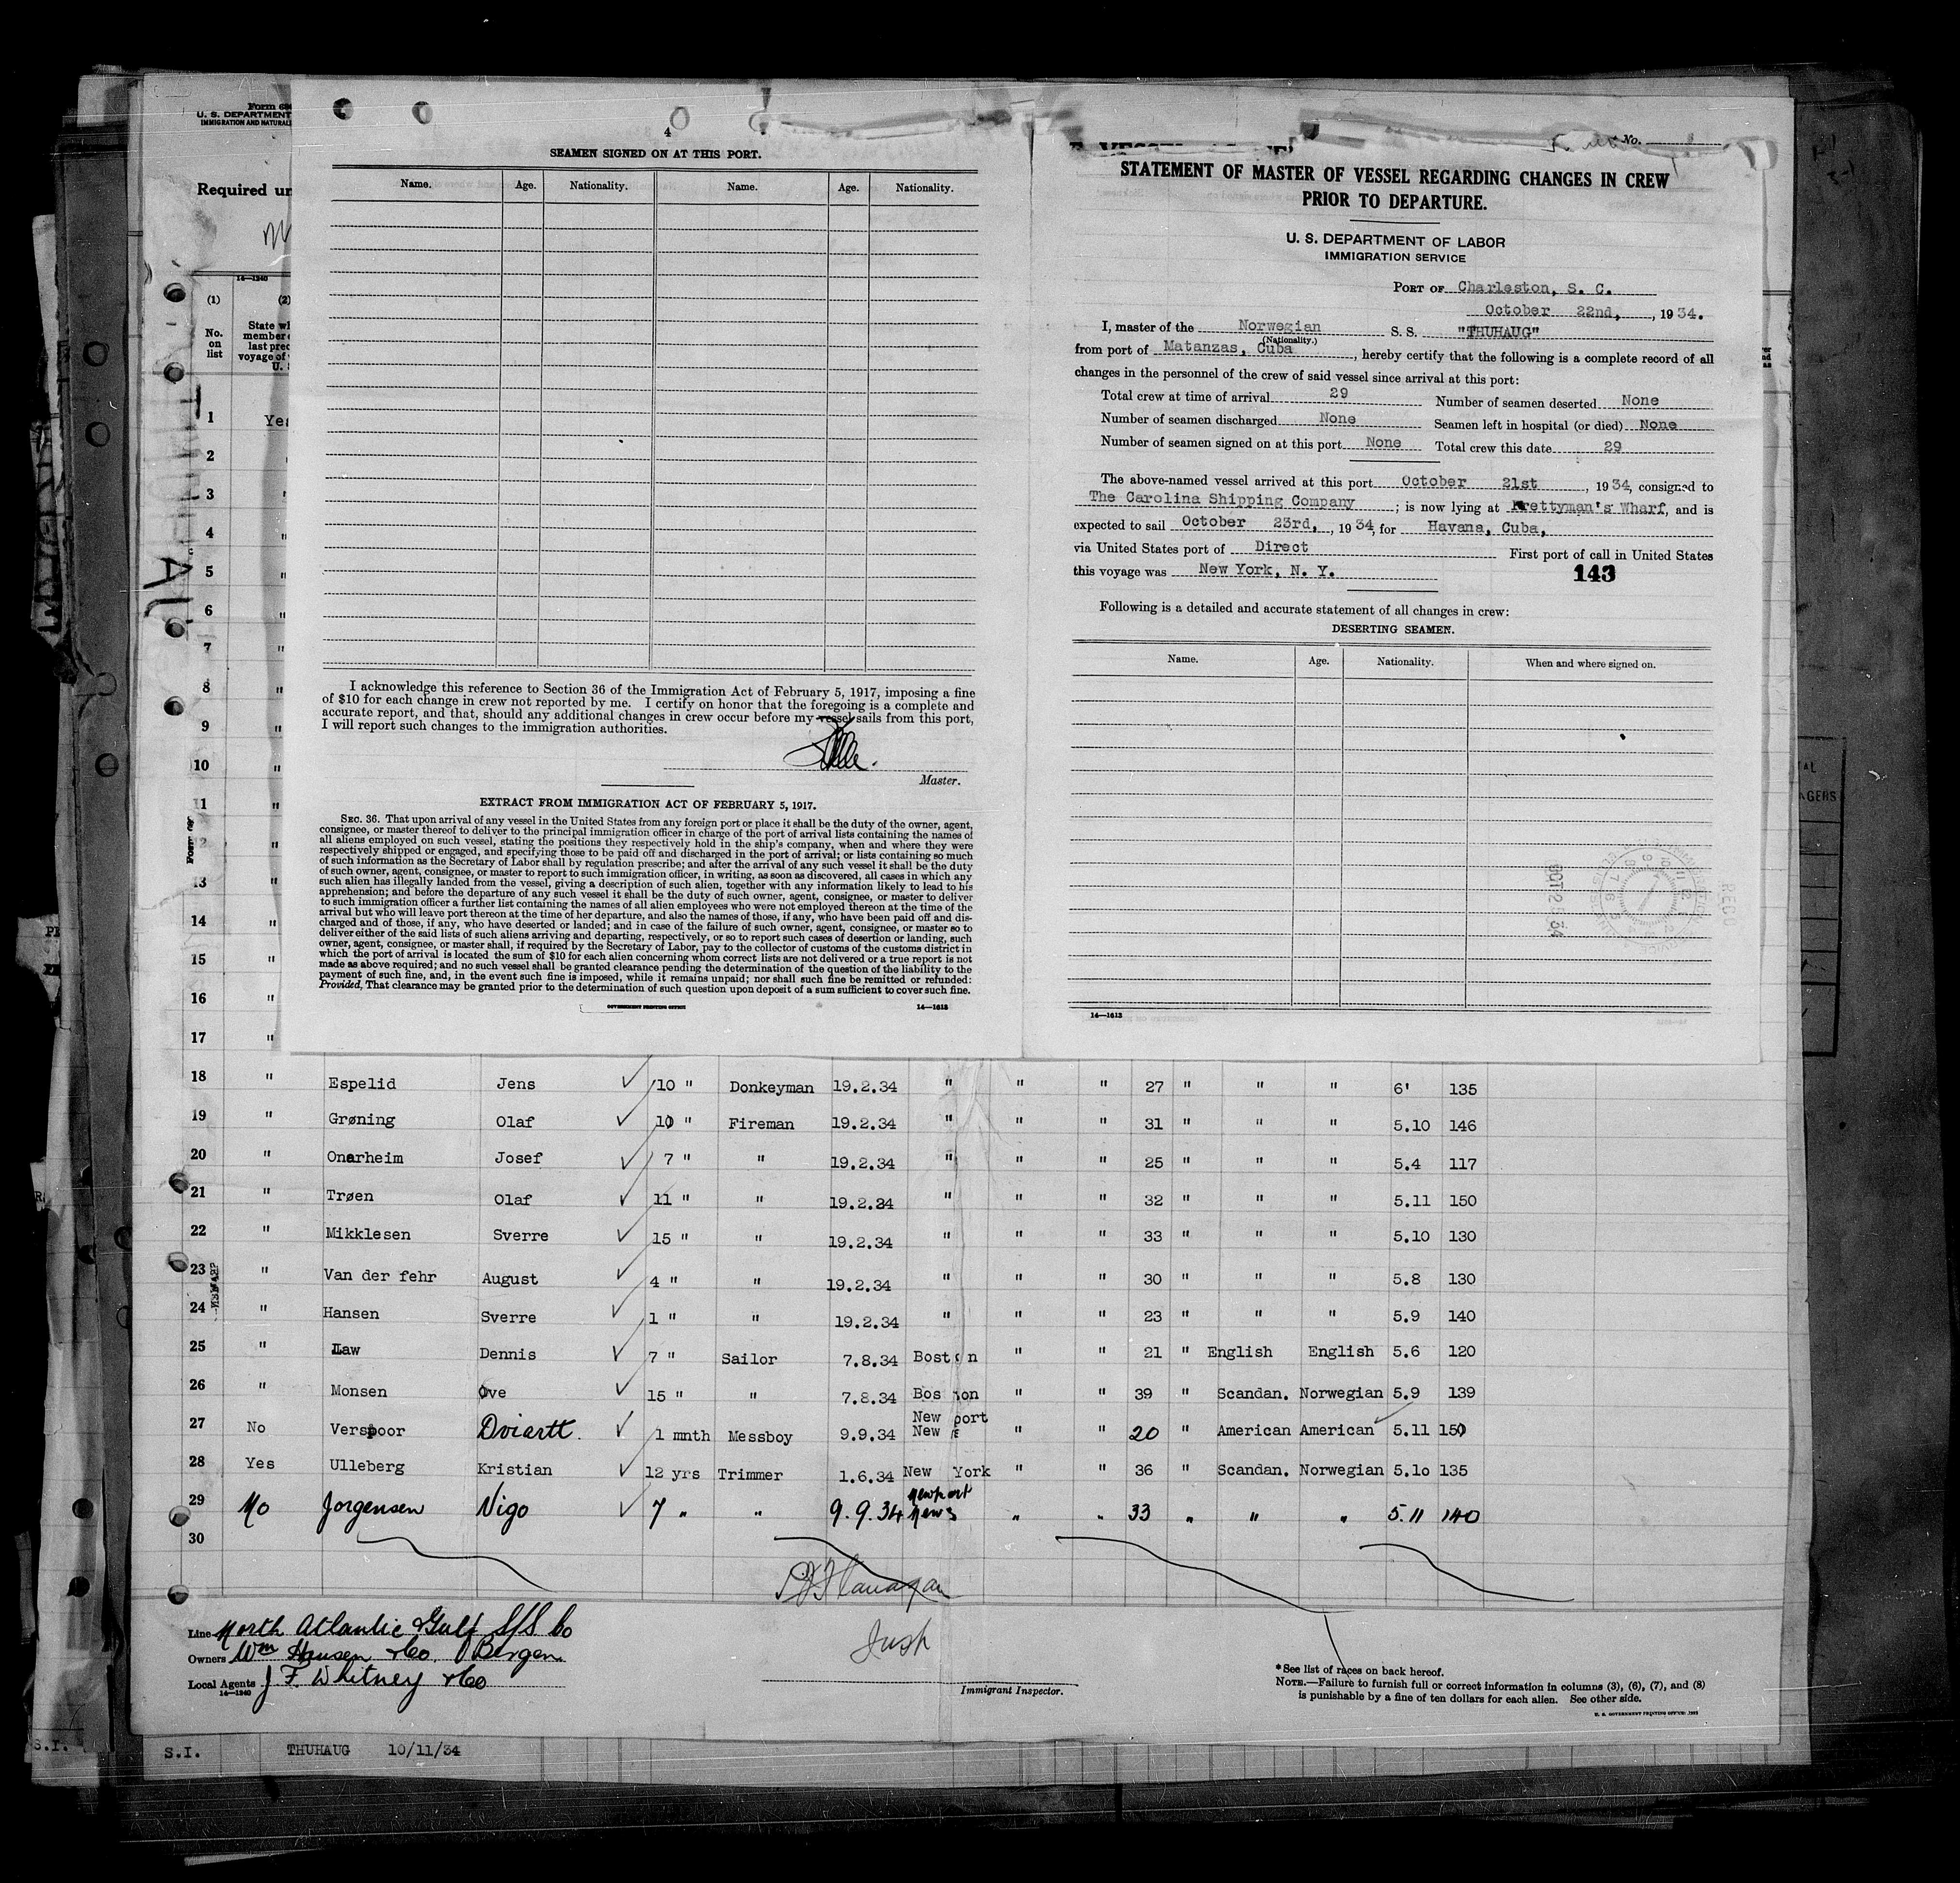 Form 680
U. S. DEPARTMENT
IMMIGRATION AND NATURAL
Required un
14—1240
(1)
(2)
No. on list
State wh
member o
last prec
voyage of
U. S
1 Yes
2 "
3 "
4 "
5 "
6 "
7 "
8 "
9 "
10 "
11 "
12 "
13 "
14 "
15 "
16 "
17 "
4
SEAMEN SIGNED ON AT THIS PORT.
Name. Age. Nationality. Name. Age. Nationality.
I acknowledge this reference to Section 36 of the Immigration Act of February 5, 1917, imposing a fine
of $10 for each change in crew not reported by me. I certify on honor that the foregoing is a complete and
accurate report, and that, should any additional changes in crew occur before my vessel sails from this port,
I will report such changes to the immigration authorities.
Master.
EXTRACT FROM IMMIGRATION ACT OF FEBRUARY 5, 1917.
SEC. 36. That upon arrival of any vessel in the United States from any foreign port or place it shall be the duty of the owner, agent,
consignee, or master thereof to deliver to the principal immigration officer in charge of the port of arrival lists containing the names of
all aliens employed on such vessel, stating the positions they respectively hold in the ship's company, when and where they were
respectively shipped or engaged, and specifying those to be paid off and discharged in the port of arrival; or lists containing so much
of such information as the Secretary of Labor shall by regulation prescribe; and after the arrival of any such vessel it shall be the duty
of such owner, agent, consignee, or master to report to such immigration officer, in writing, as soon as discovered, all cases in which any
such alien has illegally landed from the vessel, giving a description of such alien, together with any information likely to lead to his
apprehension; and before the departure of any such vessel it shall be the duty of such owner, agent, consignee, or master to deliver
to such immigration officer a further list containing the names of all alien employees who were not employed thereon at the time of the
arrival but who will leave port thereon at the time of her departure, and also the names of those, if any, who have been paid off and dis-
charged and of those, if any, who have deserted or landed; and in case of the failure of such owner, agent, consignee, or master so to
deliver either of the said lists of such aliens arriving and departing, respectively, or so to report such cases of desertion or landing, such
owner, agent, consignee, or master shall, if required by the Secretary of Labor, pay to the collector of customs of the customs district in
which the port of arrival is located the sum of $10 for each alien concerning whom correct lists are not delivered or a true report is not
made as above required; and no such vessel shall be granted clearance pending the determination of the question of the liability to the
payment of such fine, and, in the event such fine is imposed, while it remains unpaid; nor shall such fine be remitted or refunded:
Provided, That clearance may be granted prior to the determination of such question upon deposit of a sum sufficient to cover such fine.
GOVERNMENT PRINTING OFFICE 14—1613
No.
STATEMENT OF MASTER OF VESSEL REGARDING CHANGES IN CREW
PRIOR TO DEPARTURE.
U. S. DEPARTMENT OF LABOR
IMMIGRATION SERVICE
PORT OF Charleston, S. C.
October 22nd, , 1934.
I, master of the Norwegian S. S. "THUHAUG"
(Nationality.)
from port of Matanzas, Cuba , hereby certify that the following is a complete record of all
changes in the personnel of the crew of said vessel since arrival at this port:
Total crew at time of arrival 29 Number of seamen deserted None
Number of seamen discharged None Seamen left in hospital (or died) None
Number of seamen signed on at this port None Total crew this date 29
The above-named vessel arrived at this port October 21st , 1934, consigned to
The Carolina Shipping Company ; is now lying at Prettyman's Wharf, and is
expected to sail October 23rd, , 1934, for Havana, Cuba,
via United States port of Direct First port of call in United States
this voyage was New York, N. Y. 143
Following is a detailed and accurate statement of all changes in crew:
DESERTING SEAMEN.
Name. Age. Nationality. When and where signed on.
REC'D
OCT 22 34
14—1613
18 " Espelid Jens 10 " Donkeyman 19.2.34 " " " 27 " " " 6' 135
19 " Grøning Olaf 10 " Fireman 19.2.34 " " " 31 " " " 5.10 146
20 " Onarheim Josef 7 " " 19.2.34 " " " 25 " " " 5.4 117
21 " Trøen Olaf 11 " " 19.2.34 " " " 32 " " " 5.11 150
22 " Mikklesen Sverre 15 " " 19.2.34 " " " 33 " " " 5.10 130
23 " Van der fehr August 4 " " 19.2.34 " " " 30 " " " 5.8 130
24 " Hansen Sverre 1 " " 19.2.34 " " " 23 " " " 5.9 140
25 " Law Dennis 7 " Sailor 7.8.34 Boston " " 21 " English English 5.6 120
26 " Monsen Ove 15 " " 7.8.34 Boston " " 39 " Scandan. Norwegian 5.9 139
27 No Verspoor Dviartt. 1 mnth Messboy 9.9.34 New port New s " " 20 " American American 5.11 150
28 Yes Ulleberg Kristian 12 yrs Trimmer 1.6.34 New York " " 36 " Scandan. Norwegian 5.10 135
29 No Jorgensen Vigo 7 " " 9.9.34 Newport News " " 33 " " " 5.11 140
30
P J Flanagan
Insp
Line North Atlantic Gulf S/S Co
Owners Wm Hansen & Co. Bergen
Local Agents J. F. Whitney & Co
14—1240
Immigrant Inspector.
*See list of races on back hereof.
NOTE.—Failure to furnish full or correct information in columns (3), (6), (7), and (8)
is punishable by a fine of ten dollars for each alien. See other side.
U. S. GOVERNMENT PRINTING OFFICE: 1933
S.I.
S.I. THUHAUG 10/11/34